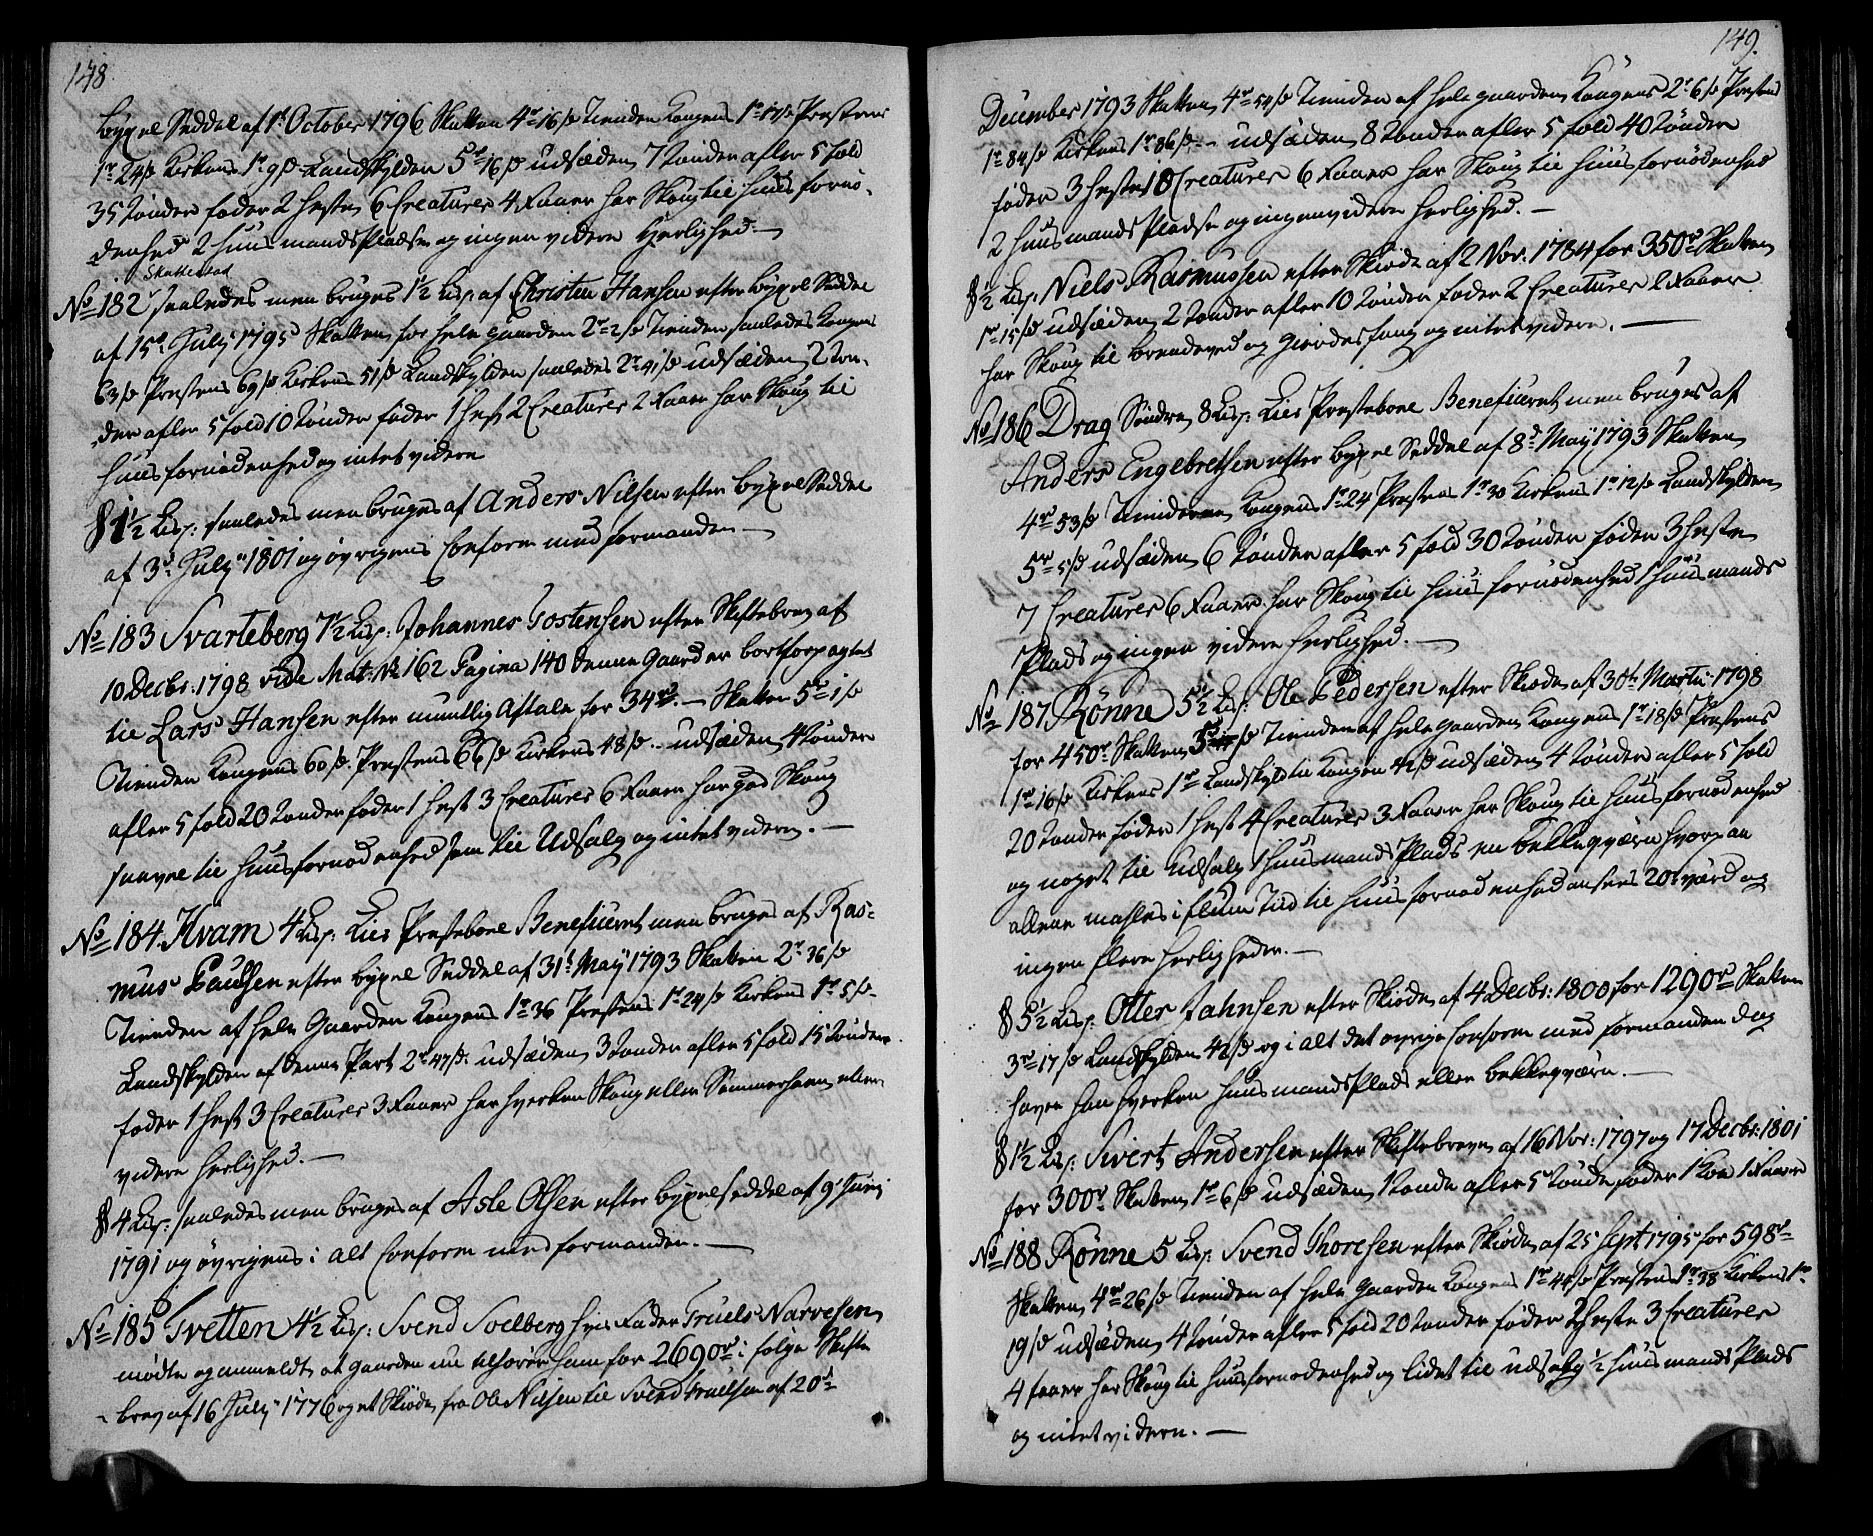 148
bÿxel Seddel af 1t October 1796 Skatten 4r 16/s Tienden Kongens 1r 17/s Prestens
1r 24/s Kirkens 1r 9/s Landskÿlden 5r 16/s udsæden 7 tønder afler 5 fold
35 tønder føder 2 heste 6 Creaturer 4 Faarer har Skoug til huus fornø-
denhed 2 huusmandsPladse og ingen videre Herlighed. —
Skattestad
No 182 saaledes men bruges 1½ Lisp: af Christen Hansen efter bÿxel Seddel
af 15de Julÿ 1795 Skatten for hele gaarden 2r 2/s Tienden saaledes Kongens
63/s Prestens 69/s Kirkens 51/s Landskÿlden saaledes 2r 41/s udsæden 2 tøn-
der afler 5 fold 10 tønder føder 1 hest 2 Creaturer 2 Faarer har Skoug til
huus fornødenhed og intet videre
§ 1½ Lisp: saaledes men bruges af Anders Nilsen efter bÿxel Seddel
af 3d Julÿ 1801 og øvrigens Conform med formanden —
No 183 Svarteberg 7½ Lisp: Johannes Tostensen efter Skiftebrev af
10 Decbr: 1798 vide Mat: No 162 Pagina 140 denne Gaard er bortforpagtet
til Lars Hansen efter mundtlig Aftale for 34rd. — Skatten 5r 1/s
Tienden Kongens 60/s Prestens 66/s Kirkens 48/s udsæden 4 tønder
afler 5 fold 20 tønder føder 1 hest 3 Creaturer 6 Faarer har god Skoug
saavel til huusfornødenhed som til Udsalg og intet videre. —
No 184 Kvam 4 Lisp: Lier Prestebord Beneficeret men bruges af Ras-
mus Paulsen efter bÿxel Seddel af 31t Maÿ 1793 Skatten 2r 36/s
Tienden af hele Gaarden Kongens 1r 36 Prestens 1r 24/s Kirkens 1r 5/s
Landskÿlden af denne Part 2r 47/s. udsæden 3 tønder afler 5 fold 15 tønder
føder 1 hest 3 Creaturer 3 Faarer har hverken Skoug eller Sommerhavn eller
videre herlighed. —
§ 4 Lisp: saaledes men bruges af Asle Olsen efter bÿxelseddel af 9t Junj
1791 og øvrigens i alt Conform med formanden. —
No 185 Tvetten 4½ Lisp: Svend Soelberg hvis Fader Truels Narvesen
mødte og anmeldte at gaarden nu tilhører ham for 2690rd i følge Skifte
brev af 16 Julÿ 1776 og et Skiøde fra Ole Nilsen til Svend Truelsen af 20d
149.
December 1793 Skatten 4r 54/s Tienden af hele gaarden Kongens 2r 6/s Prestens
1r 84/s Kirkens 1r 86/s — udsæden 8 tønder afler 5 fold 40 tønder
føder 3 heste 10 Creaturer 6 Faarer har Skoug til huusfornødenhed
2 huusmandsPladse og ingen videre herlighed. —
§ ½ Lisp: Niels Rasmussen efter Skiøde af 2 Nov: 1784 for 350rd Skatten
1r 15/s udsæden 2 tønder afler 10 tønder føder 2 Creaturer 2 Faarer
har Skoug til brendeved og Gierdesfang og intet videre. —
No 186 Drag Søndre 8 Lisp: Lier Prestebord Beneficeret men bruges af
Anders Engebretsen efter bÿxel Seddel af 8d Maÿ 1793 Skatten
4r 53/s Tienderne Kongens 1r 24 Prestens 1r 30 Kirkens 1r 12/s Landskÿlden
5r 5/s udsæden 6 tønder afler 5 fold 30 tønder føder 3 heste
7 Creaturer 6 Faarer har Skoug til huus fornødenhed 1 huusmands
Plads og ingen videre herlighed. —
No 187 Rønne 5½ Lisp: Ole Pedersen efter Skiøde af 30te Martii 1798
for 450r Skatten 3r 17/s Tienden af hele gaarden Kongens 1r 18/s Prestens
1r 16/s Kirkens 1r Landskÿld til Kongen 42/s udsæden 4 tønder afler 5 fold
20 tønder føder 1 hest 4 Creaturer 3 Faarer har Skoug til huusfornødenhed
og noget til Udsalg 1 huusmandsPlads en bekkeqværn hvorpaa
allene mahles i flom Tiid til huusfornødenhed ansees 20r værd og
ingen flere herligheder. —
§ 5½ Lisp: Otter Jahnsen efter Skiøde af 4 Decbr: 1800 for 1290rd Skatten
3r 17/s Landskÿlden 42/s og i alt det øvrige Conform med formanden dog
haver han hverken huusmandsPlads eller bekkeqværn. —
§ 1½ Lisp: Sivert Andersen efter Skiftebreve af 16 Nov: 1797 og 17 Decbr: 1801
for 300rd Skatten 1r 6/s udsæden 1 tønde afler 5 tønder føder 1 Koe 1 Faarer
No 188 Rønne 5 Lisp: Svend Thoresen efter Skiøde af 25 Sept 1795 for 598rd
Skatten 4r 26/s Tienden af hele Gaarden Kongens 1r 44/s Prestens 1r 38 Kirkens 1r
19/s udsæden 4 tønder afler 5 fold 20 tønder føder 2 heste 3 Creaturer
4 faarer har Skoug til huusfornødenhed og lidet til udsalg ½ huusmands Plads
og intet videre. —